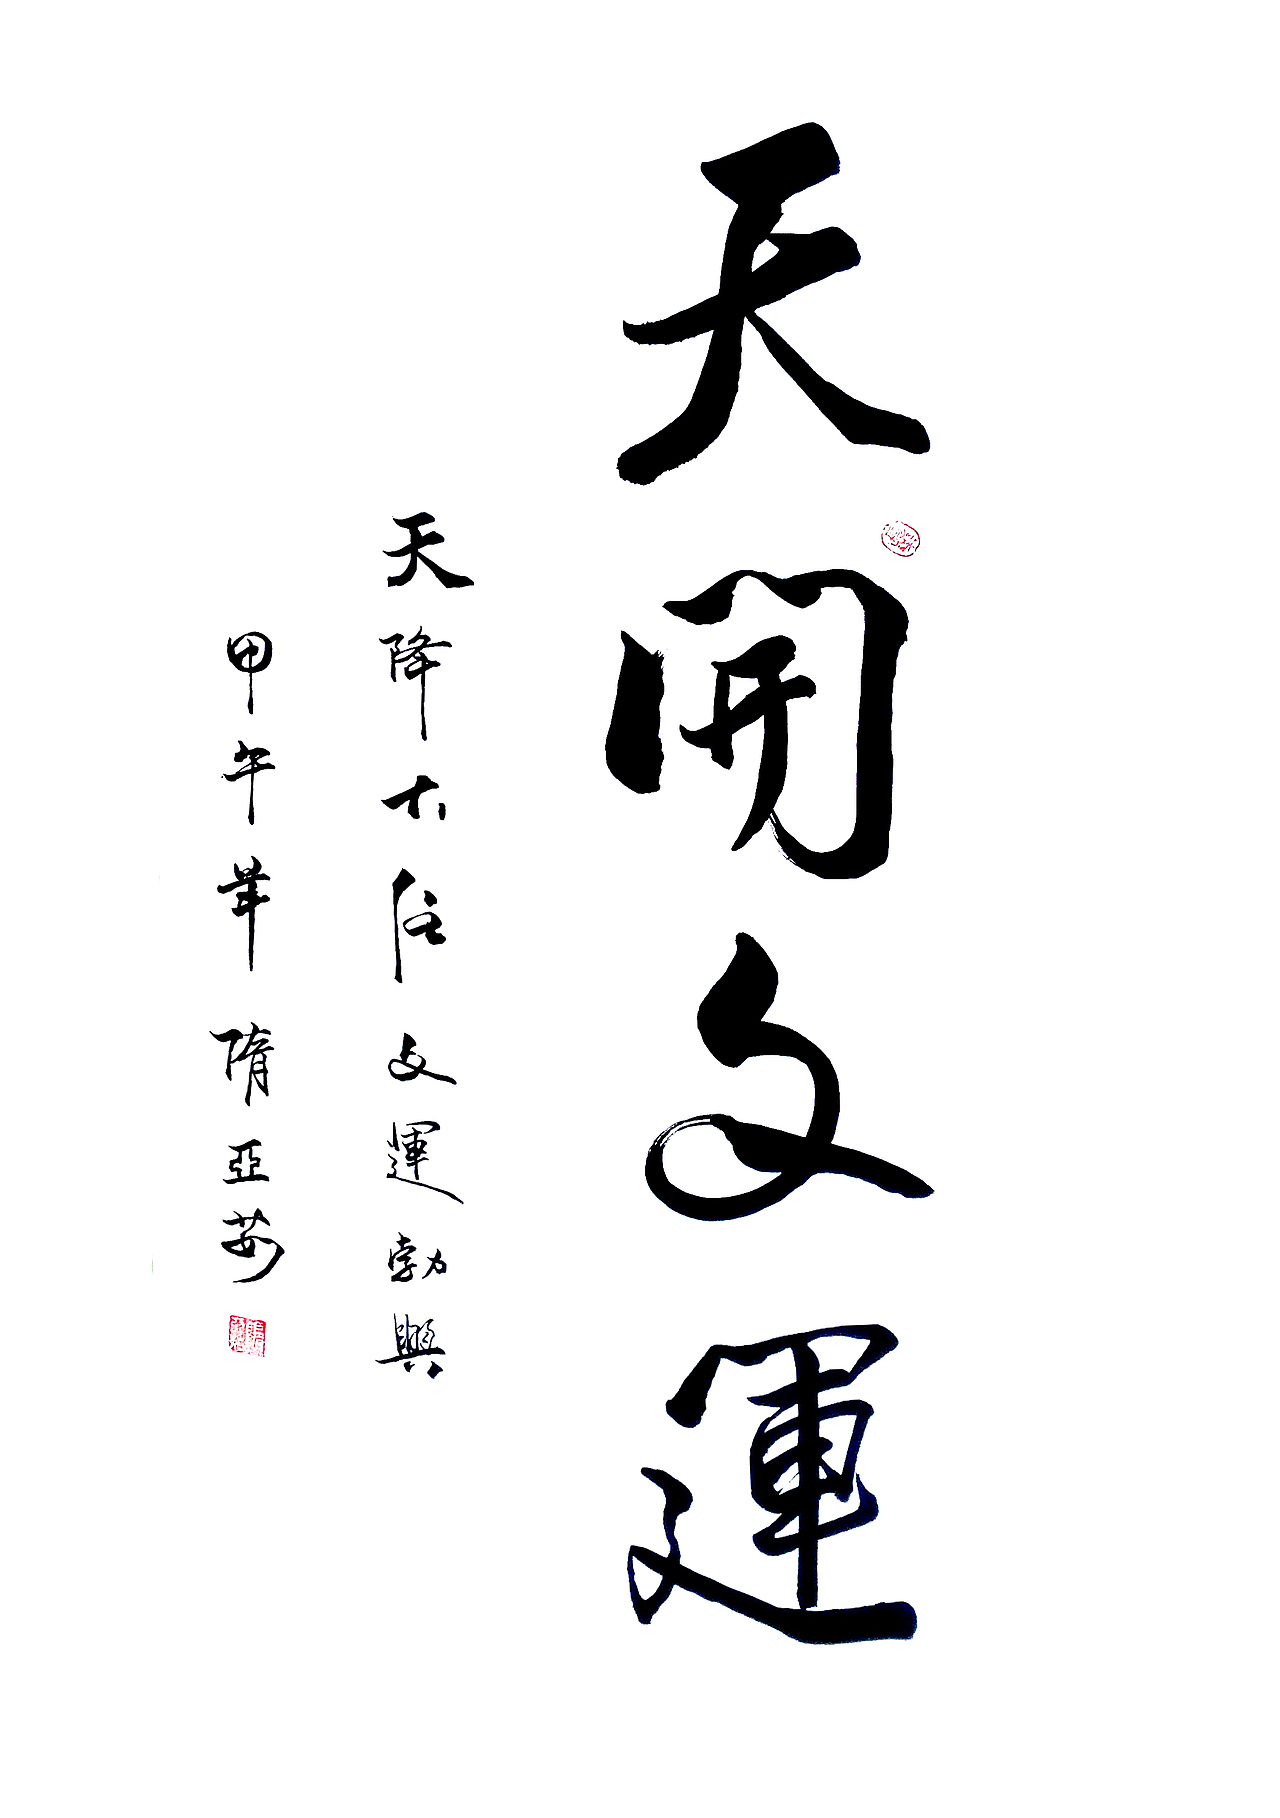 天開文運
天降大任文運勃興
甲午年 隋亞茹